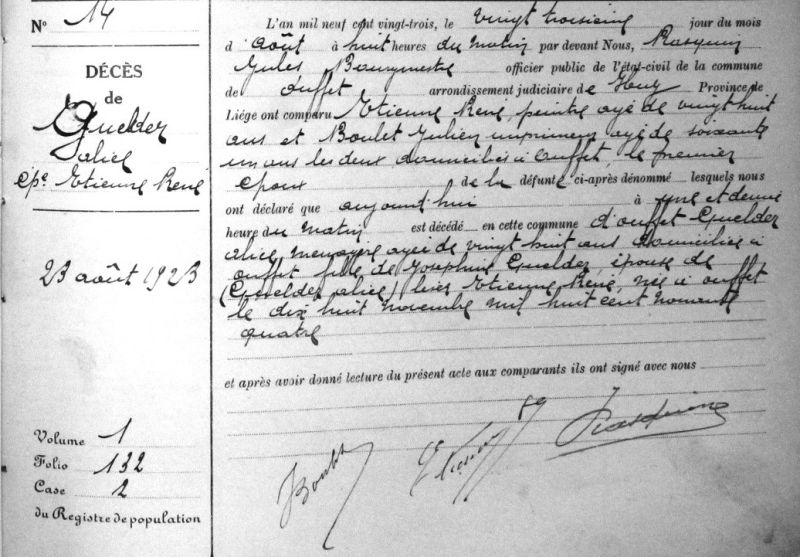 N° 14
DÉCÈS
de
Guelder
alice
épse Etienne René
23 août 1923
Volume 1
Folio 132
Case 2
du Registre de population
L'an mil neuf cent vingt-trois, le vingt troisième jour du mois
d'août à huit heures du matin par devant Nous, Rasquin
Jules Bourgmestre officier public de l'état-civil de la commune
de Ouffet arrondissement judiciaire de Huy Province de
Liége ont comparu Etienne René, peintre agé de vingt huit
ans et Boulet Julien imprimeur agé de soixante
un ans les deux domiciliés à Ouffet, le premier
époux de la défunte ci-après dénommé lesquels nous
ont déclaré que aujourd'hui à une et demie
heure du matin est décédé en cette commune d'ouffet Guelder
alice, menagère agée de vingt huit ans domiciliée à
ouffet fille de Josephine Guelder, épouse de
(Guelder alice) Etienne René, née à ouffet
le dix huit novembre mil huit cent nonante
quatre
et après avoir donné lecture du présent acte aux comparants ils ont signé avec nous
Boulet
Etienne
Rasquin